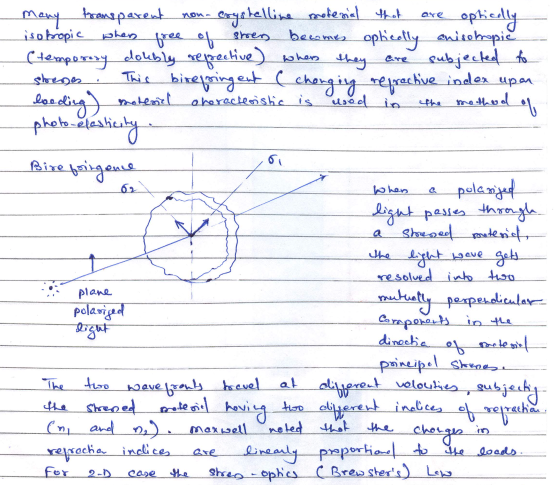 Many transparent non-crystalline material that are optically
isotropic when free of stress becomes optically anisotropic
(temporary doubly refractive) when they are subjected to
stresses. This birefringent (changing refractive index upon
loading) material characteristic is used in the method of
photo-elasticity.
Birefringence
σ2
σ1
plane
polarized
light
When a polarized
light passes through
a stressed material,
the light wave gets
resolved into two
mutually perpendicular
components in the
direction of material
principal stresses.
The two wavefronts travel at different velocities, subjectig
the stressed material having two different indices of refraction
(n1 and n2). Maxwell noted that the changes in
refraction indices are linearly proportional to the loads.
For 2-D case the stress-optics (Brewster's) Law